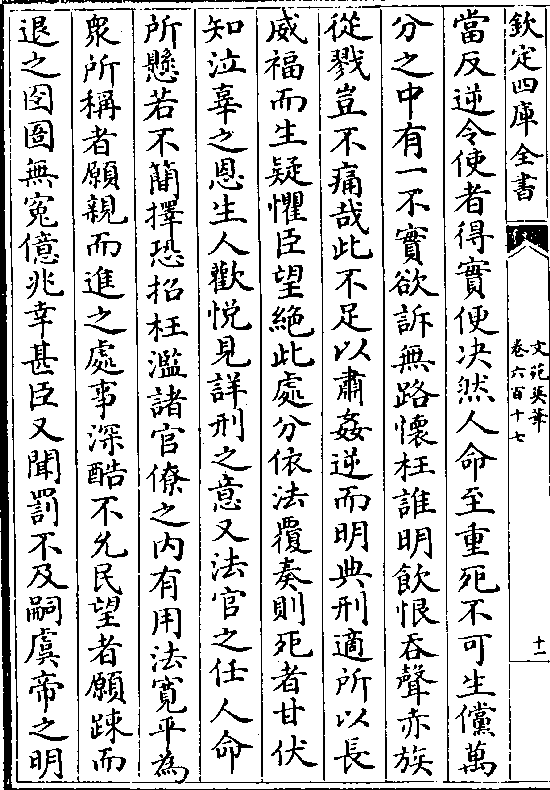 欽定四庫全書
文苑英華
卷六百十七
十二
當反逆令使者得實便决然人命至重死不可生儻萬
分之中有一不實欲訴無路懷枉誰明飲恨吞聲赤族
從戮豈不痛哉此不足以肅姦逆而明典刑適所以長
威福而生疑懼臣望絶此處分依法覆奏則死者甘伏
知泣辜之恩生人歡悅見詳刑之意又法官之任人命
所懸若不簡擇恐招枉濫諸官僚之内有用法寛平為
衆所稱者願親而進之處事深酷不允民望者願踈而
退之囹圄無寃億兆幸甚臣又聞罰不及嗣虞帝之明